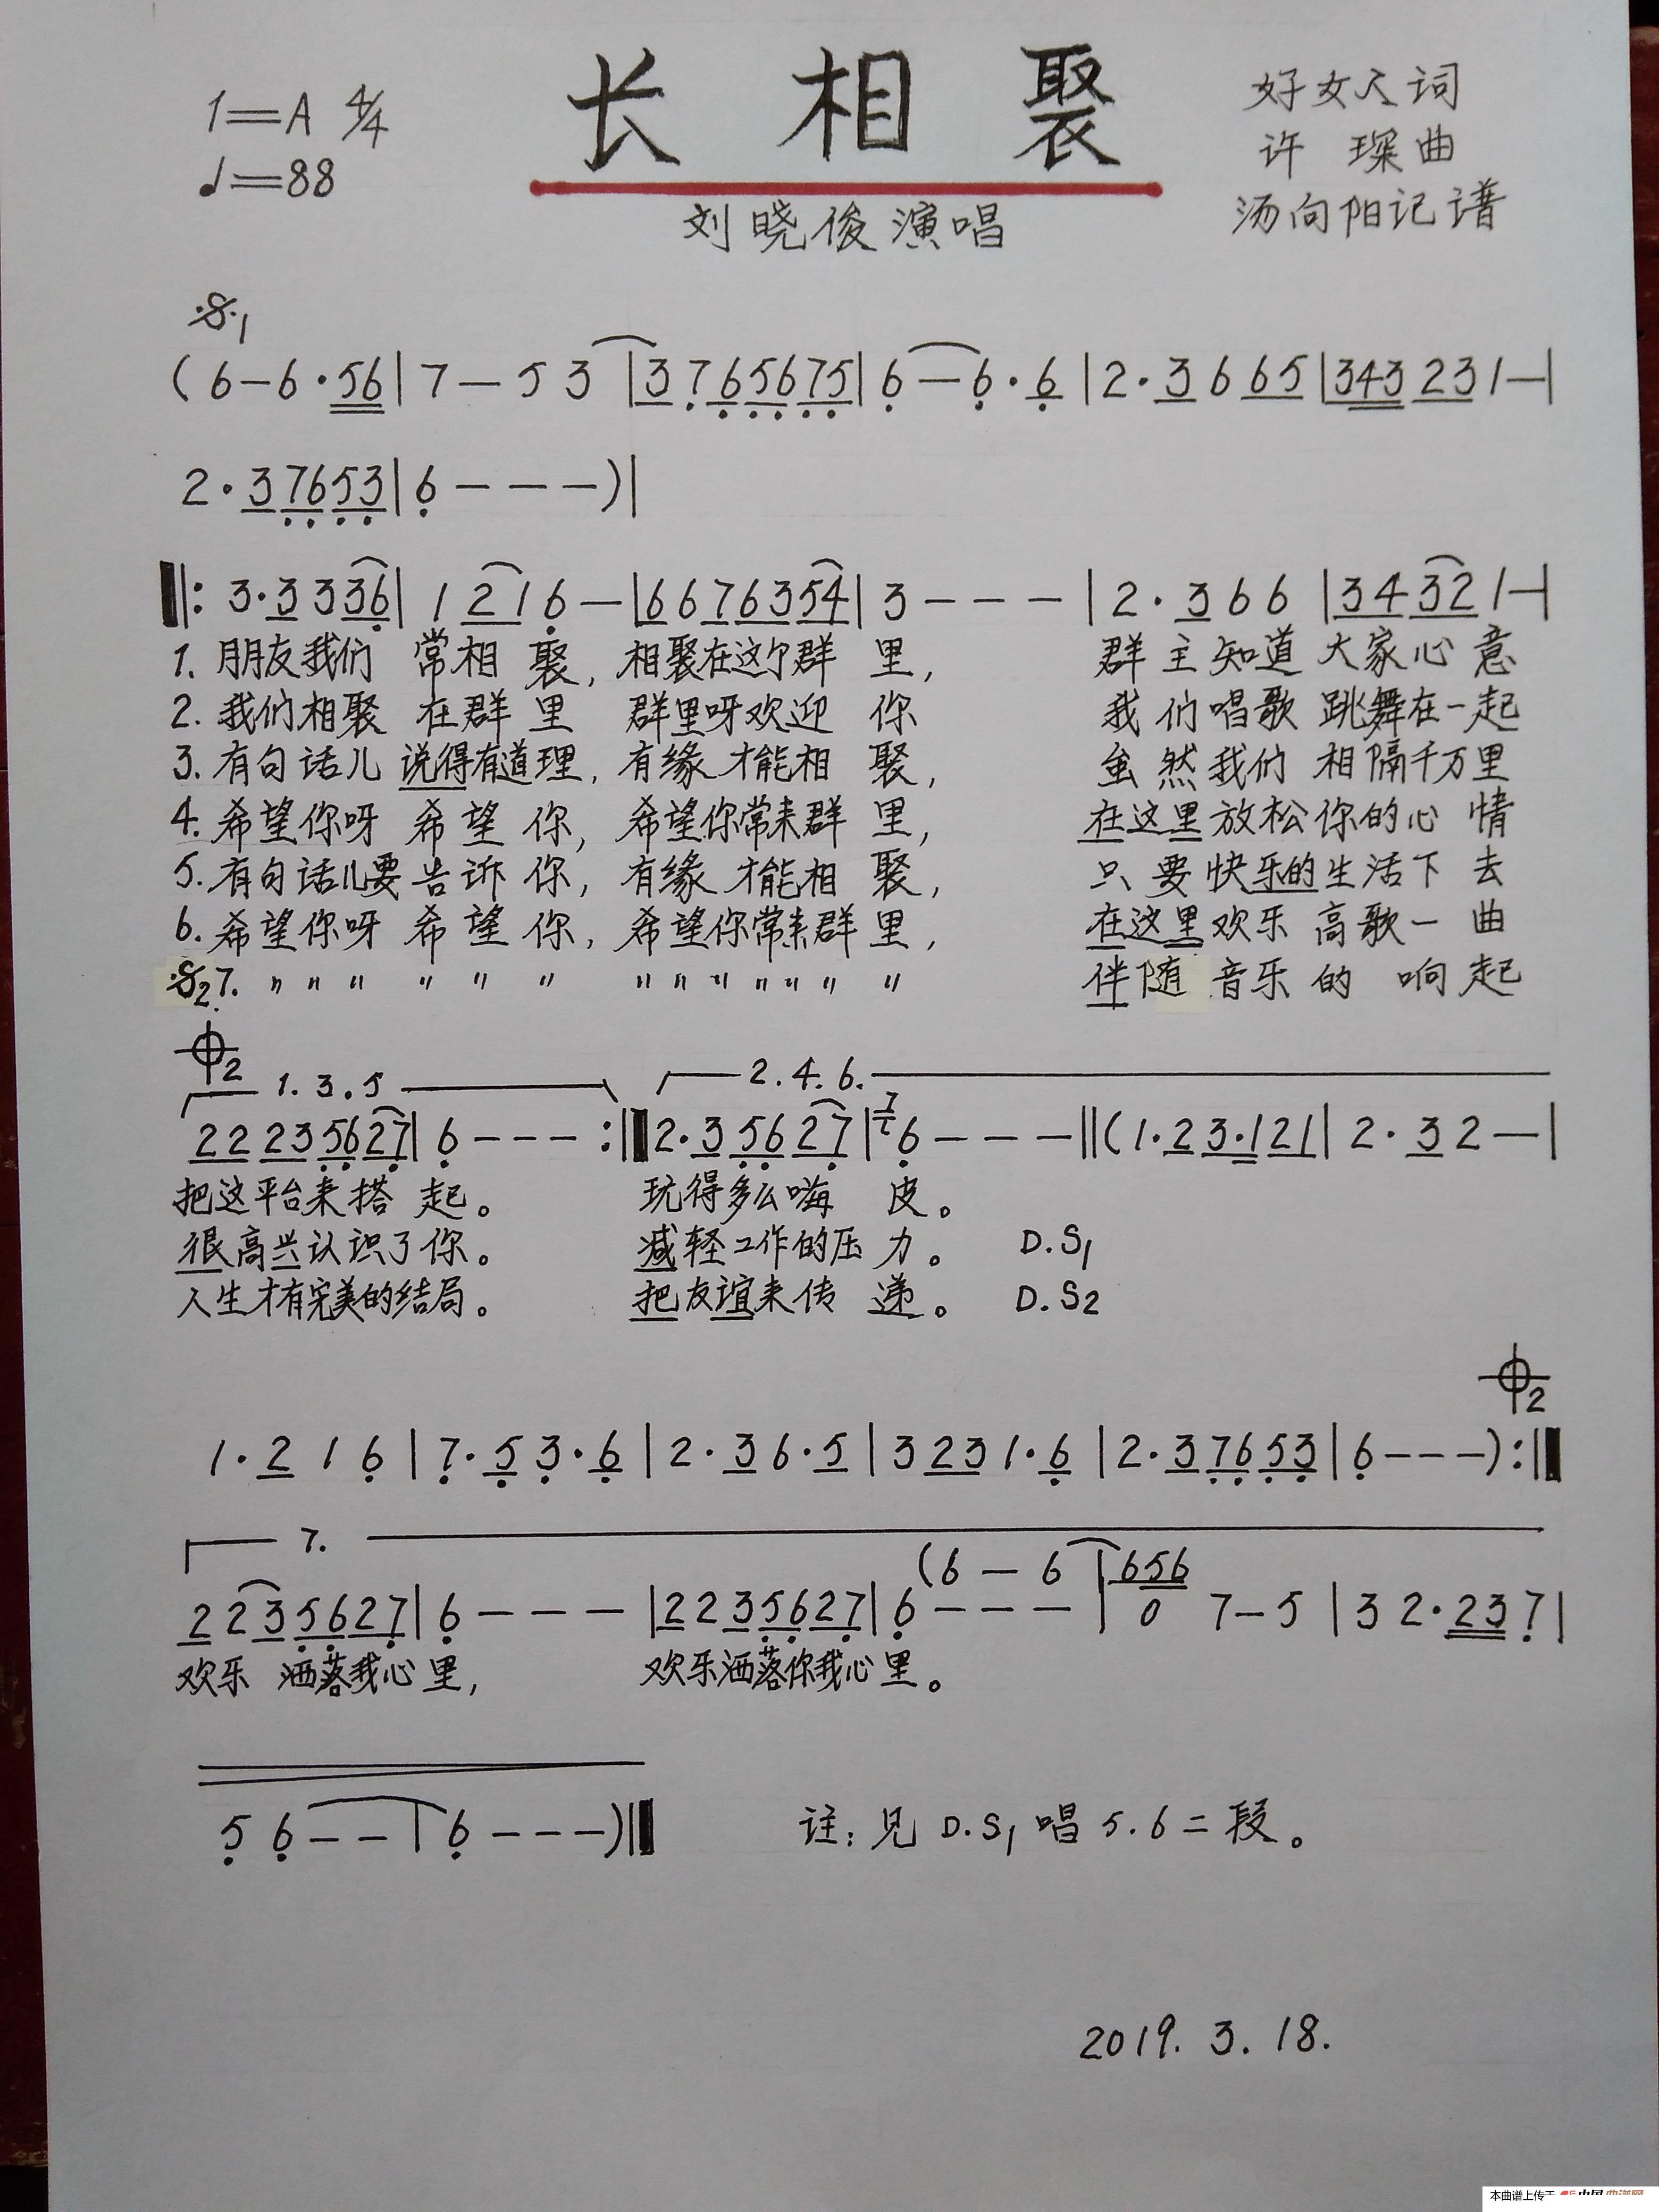 长相聚
1=A 4/4
♩=88
好女人词
许琛曲
汤向阳记谱
刘晓俊演唱
𝄋1
(6—6·56|7—53|3765675|6—6·6|2·3665|343231—|
2·37653|6---)|
‖:3·3336|1216—|6676354|3---|2·366|34321—|
1.朋友我们 常相聚,相聚在这个群里, 群主知道大家心意
2.我们相聚 在群里 群里呀欢迎你 我们唱歌跳舞在一起
3.有句话儿 说得有道理,有缘才能相聚, 虽然我们相隔千万里
4.希望你呀 希望你,希望你常来群里, 在这里放松你的心情
5.有句话儿要告诉你,有缘才能相聚, 只要快乐的生活下去
6.希望你呀 希望你,希望你常来群里, 在这里欢乐高歌一曲
𝄋2 7. 〃 〃 〃 〃 〃 〃 〃 〃 〃 〃 〃 〃 〃 伴随音乐的响起
𝄌2
1.3.5 2.4.6.
22235627|6---:‖2·35627|7 6---‖(1·23·121|2·32—|
把这平台来搭起。 玩得多么嗨皮。
很高兴认识了你。 减轻工作的压力。 D.S1
人生才有完美的结局。 把友谊来传递。 D.S2
𝄌2
1·216|7·53·6|2·36·5|3231·6|2·37653|6---):‖
7.
(6—6|656
2235627|6---|2235627|6---|0 7—5|32·237|
欢乐 洒落我心里, 欢乐洒落你我心里。
56--|6---)‖ 注:见D.S1唱5.6二段。
2019.3.18.
本曲谱上传于